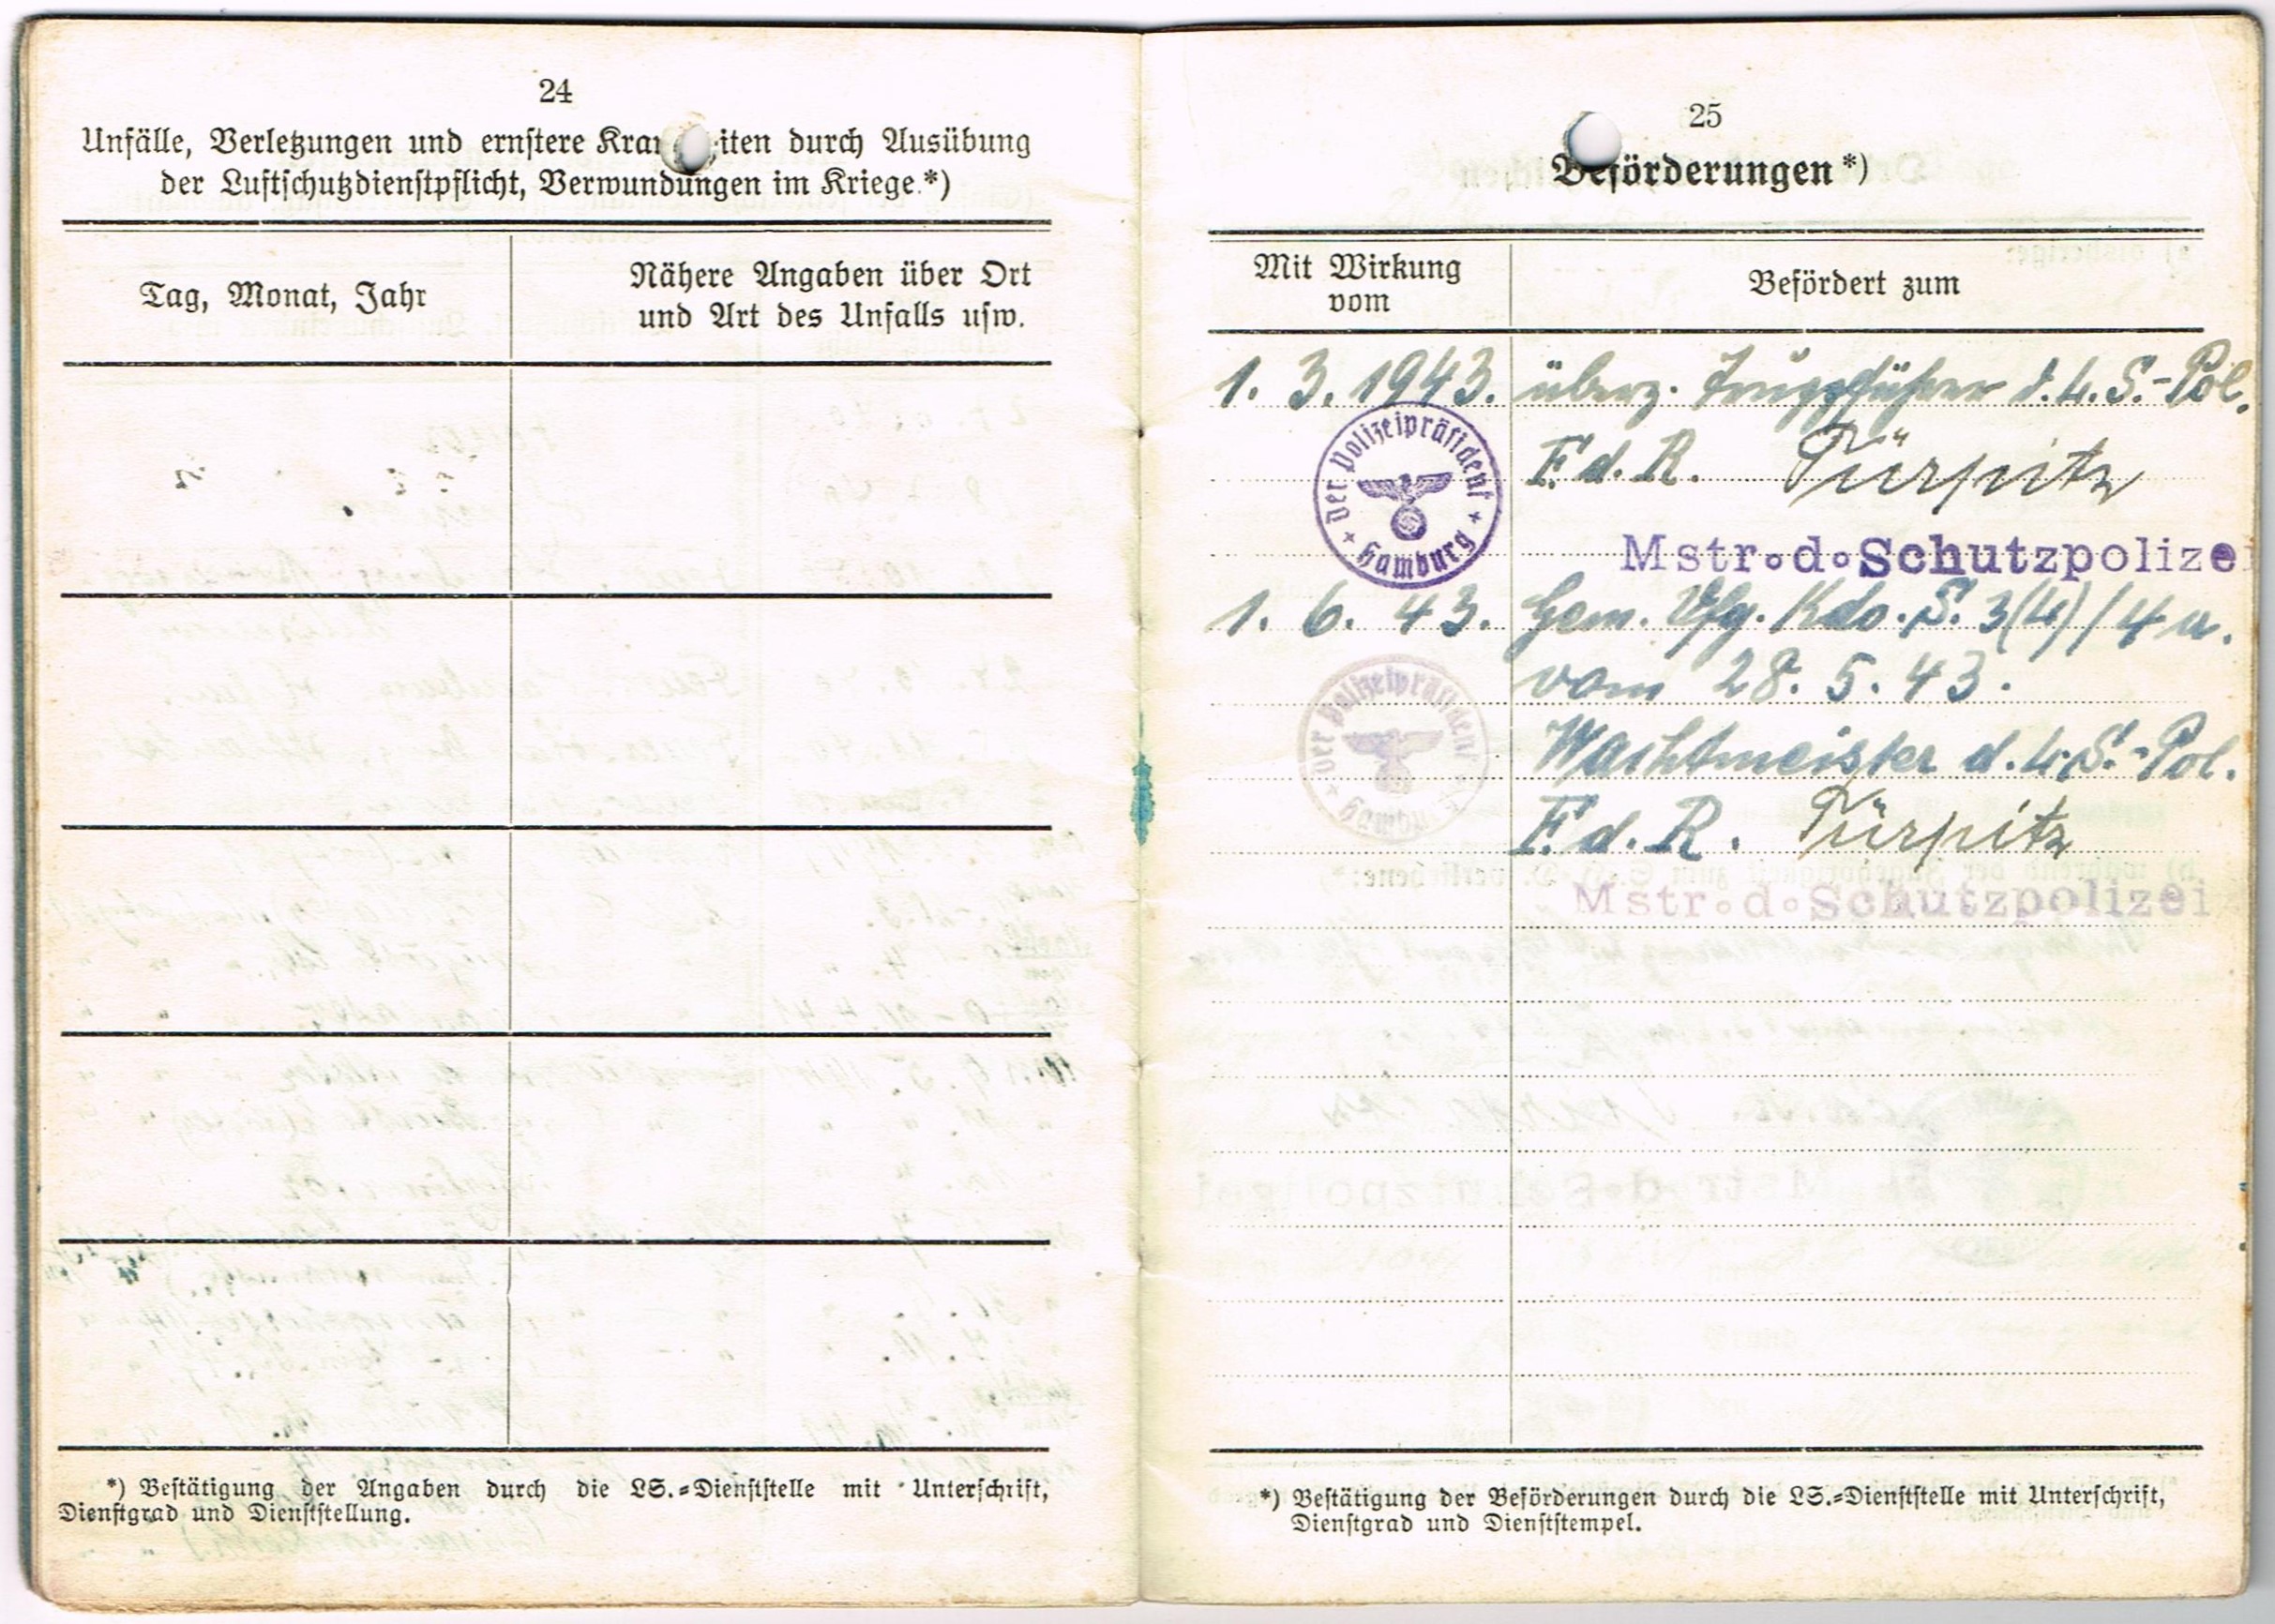 24
Unfälle, Verletzungen und ernstere Kran iten durch Ausübung
der Luftschutzdienstpflicht, Verwundungen im Kriege.*)
Tag, Monat, Jahr
Nähere Angaben über Ort
und Art des Unfalls usw.
*) Bestätigung der Angaben durch die LS.=Dienststelle mit Unterschrift,
Dienstgrad und Dienststellung.
25
Beförderungen*)
Mit Wirkung
vom
Befördert zum
1. 3. 1943. überz. Truppführer d. L. S.-Pol.
F. d. R. Türpitz
Der Polizeipräsident
Hamburg
Mstr.d.Schutzpolizei
1. 6. 43. Gem. Vfg. Kdo. S. 3(L)/4 a.
vom 28. 5. 43.
Der Polizeipräsident
Hamburg
Wachtmeister d. L.S.-Pol.
F. d. R. Türpitz
Mstr.d.Schutzpolizei
*) Bestätigung der Beförderungen durch die LS.=Dienststelle mit Unterschrift,
Dienstgrad und Dienststempel.